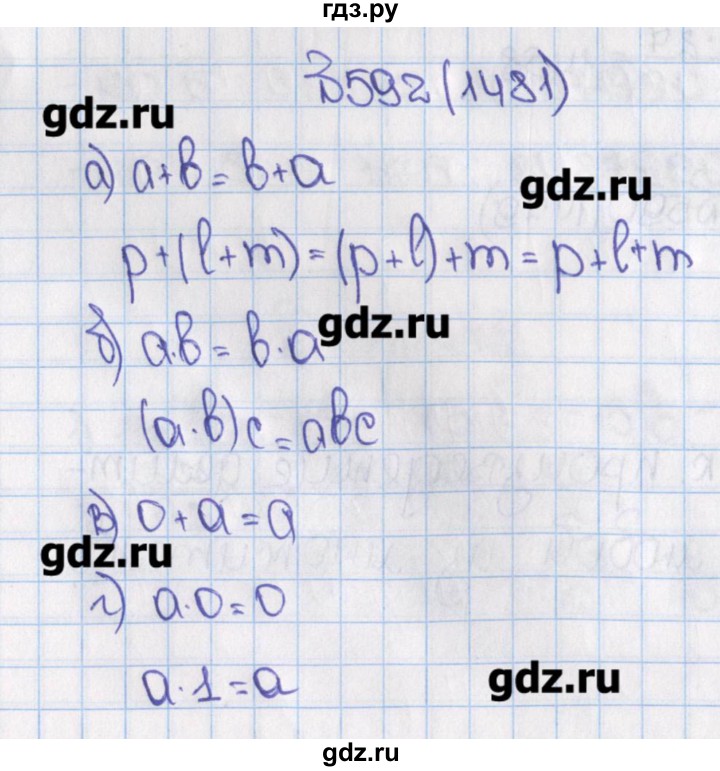 гдз.ру
№592 (1481)
gdz.ru
а) a+b=b+a
gdz.ru
p+(l+m)=(p+l)+m=p+l+m
gdz.ru
б) a·b=b·a
(a·b)c=abc
в) 0+a=a
gdz.ru
г) a·0=0
a·1=a
gdz.ru
gdz.ru